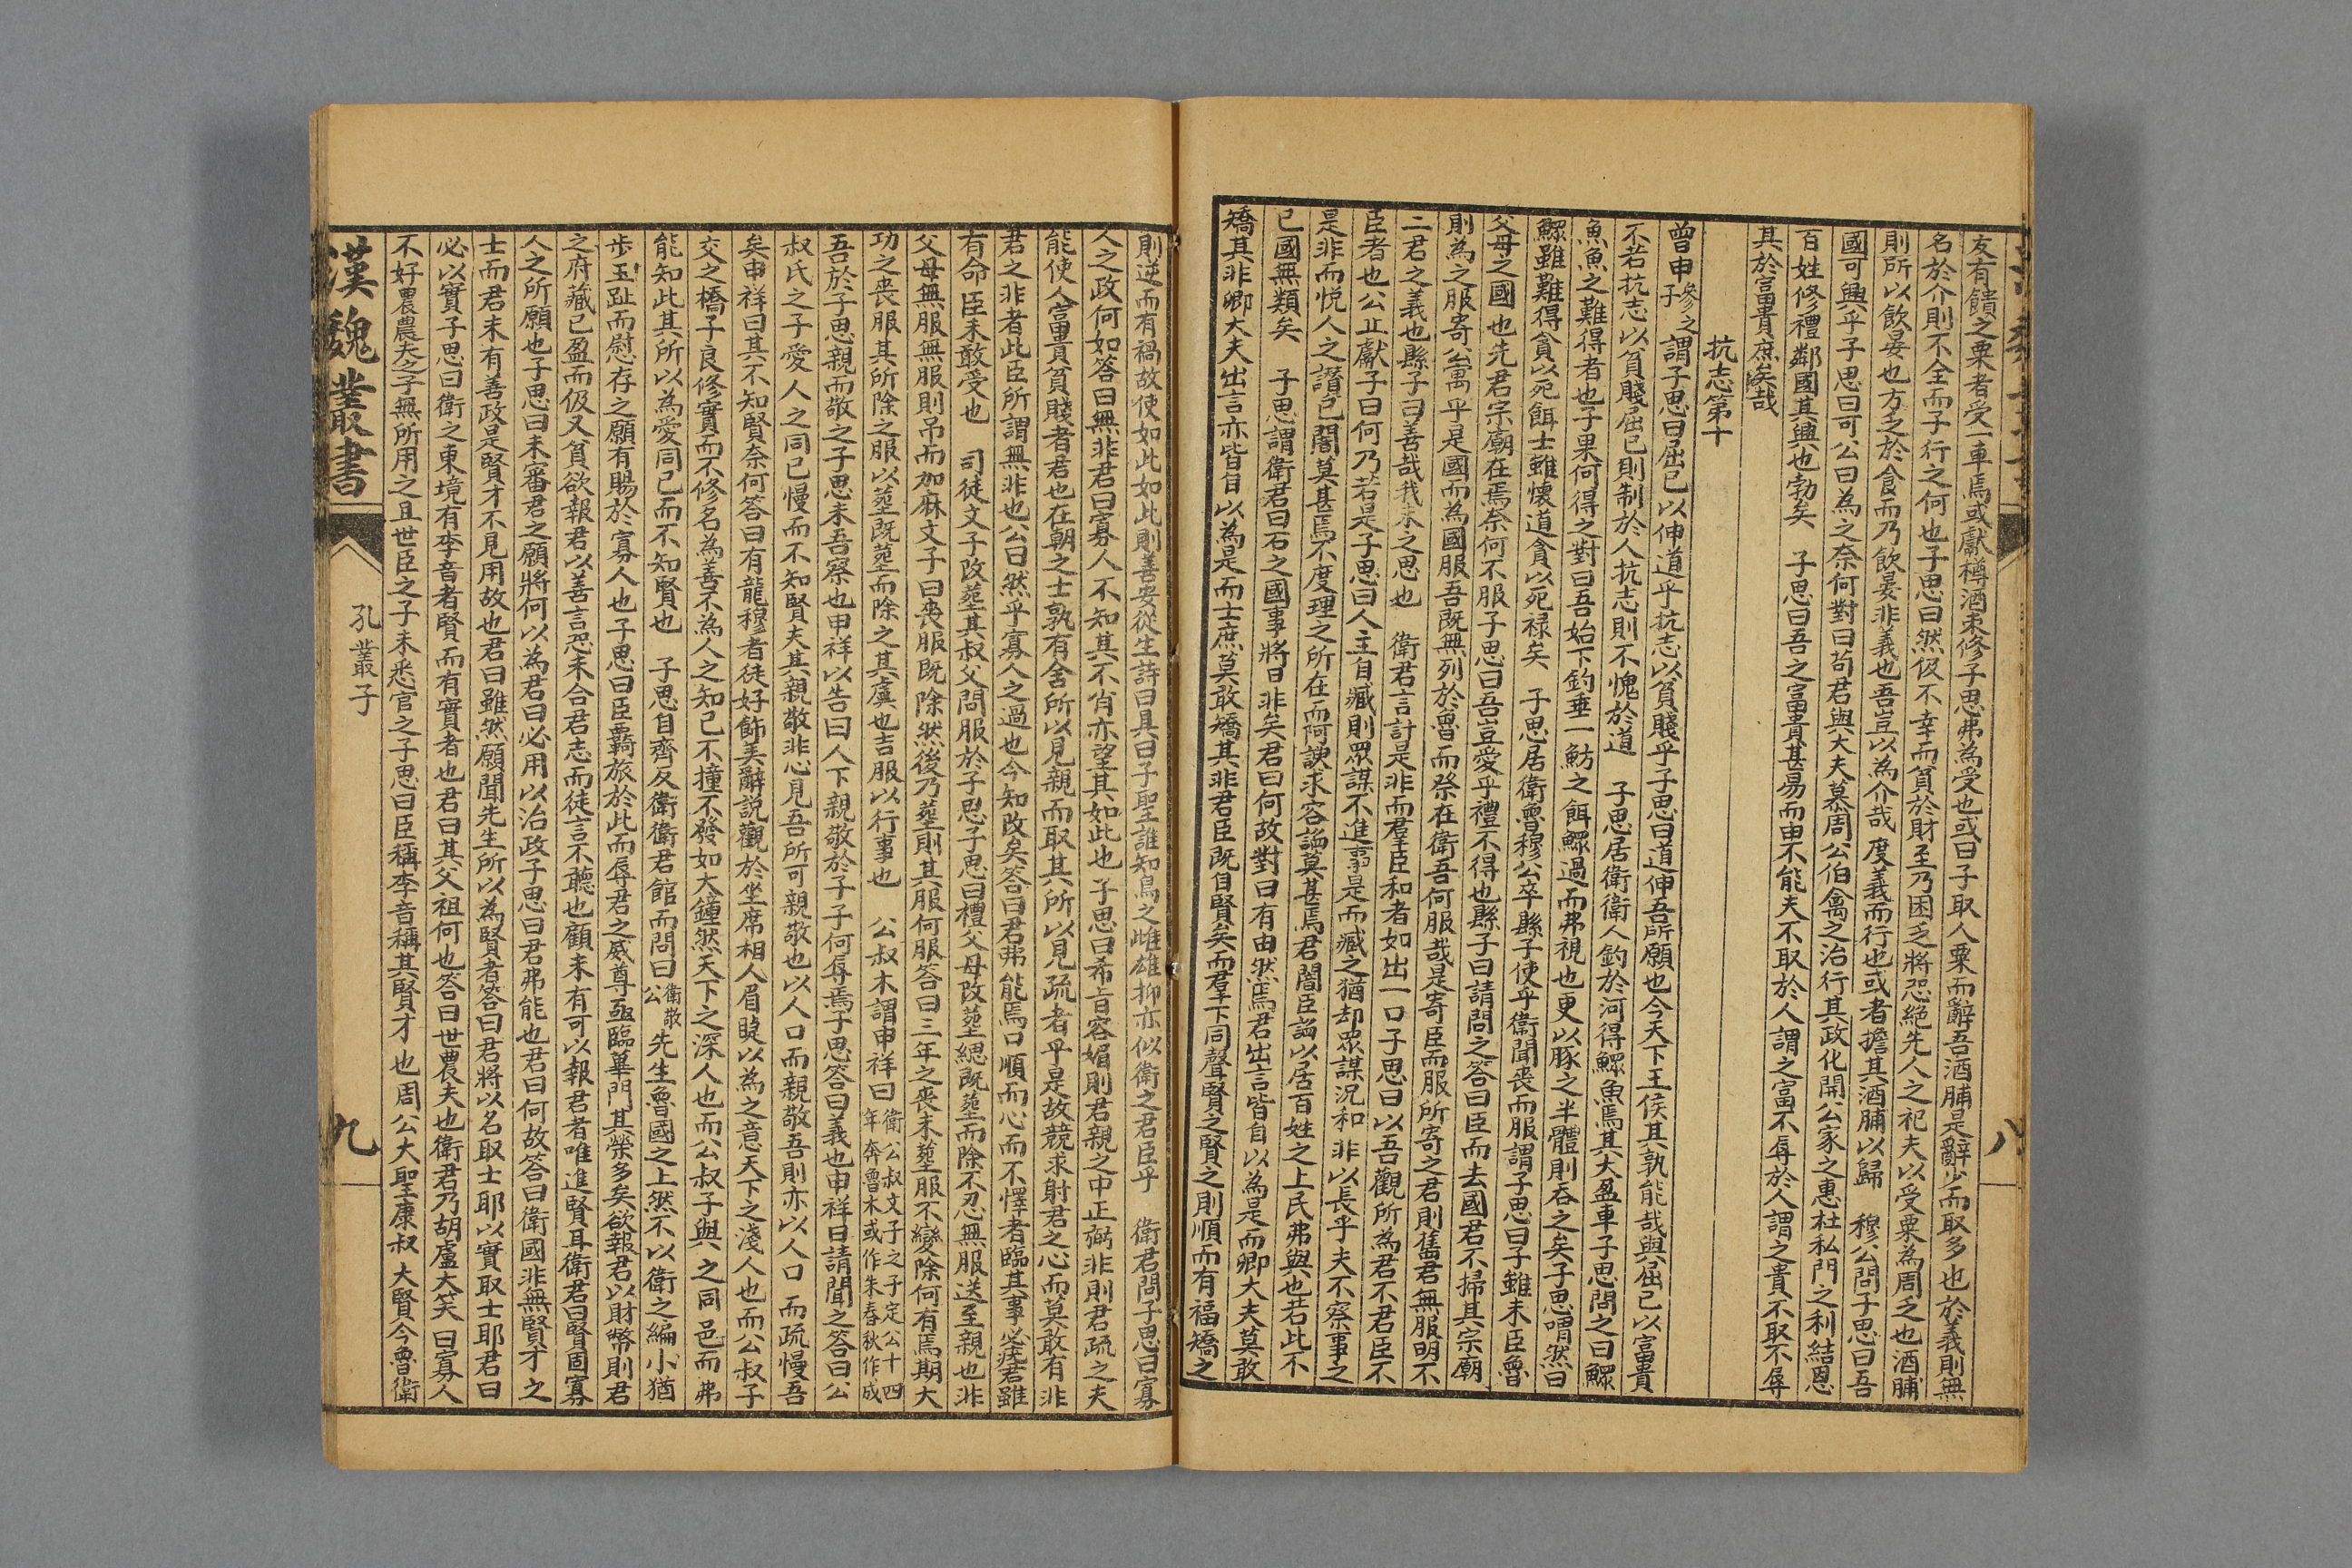 友有饋之粟者受一車焉或獻樽酒束修子思弗為受也或曰子取人粟而辭吾酒脯是辭少而取多也於義則無
名於介則不全而子行之何也子思曰然伋不幸而貧於財至乃困乏將恐絕先人之祀夫以受粟為周乏也酒脯
則所以飲宴也方乏於食而乃飲宴非義也吾豈以為介哉度義而行也或者擔其酒脯以歸 穆公問子思曰吾
國可興乎子思曰可公曰為之奈何對曰苟君與大夫慕周公伯禽之治行其政化開公家之惠杜私門之利結恩
百姓修禮鄰國其興也勃矣 子思曰吾之富貴甚易而由不能夫不取於人謂之富不辱於人謂之貴不取不辱
其於富貴庶矣哉
抗志第十
曾申參之子謂子思曰屈己以伸道乎抗志以貧賤乎子思曰道伸吾所願也今天下王侯其孰能哉與屈己以富貴
不若抗志以貧賤屈己則制於人抗志則不愧於道 子思居衛衛人釣於河得鰥魚焉其大盈車子思問之曰鰥
魚魚之難得者也子果何得之對曰吾始下釣垂一魴之餌鰥過而弗視也更以豚之半體則吞之矣子思喟然曰
鰥雖難得貪以死餌士雖懷道貪以死祿矣 子思居衛魯穆公卒縣子使乎衛聞喪而服謂子思曰子雖未臣魯
父母之國也先君宗廟在焉奈何不服子思曰吾豈愛乎禮不得也縣子曰請問之答曰臣而去國君不掃其宗廟
則為之服寄公寓乎是國而為國服吾既無列於魯而祭在衛吾何服哉是寄臣而服所寄之君則舊君無服明不
二君之義也縣子曰善哉我未之思也 衛君言計是非而羣臣和者如出一口子思曰以吾觀所為君不君臣不
臣者也公丘懿子曰何乃若是子思曰人主自臧則眾謀不進事是而臧之猶却眾謀況和非以長乎夫不察事之
是非而悅人之讚己闇莫甚焉不度理之所在而阿諛求容諂莫甚焉君闇臣諂以居百姓之上民弗與也若此不
已國無類矣 子思謂衛君曰君之國事將日非矣君曰何故對曰有由然焉君出言皆自以為是而卿大夫莫敢
矯其非卿大夫出言亦皆自以為是而士庶莫敢矯其非君臣既自賢矣而羣下同聲賢之賢之則順而有福矯之
八
則逆而有禍故使如此如此則善安從生詩曰具曰予聖誰知烏之雌雄抑亦似衛之君臣乎 衛君問子思曰寡
人之政何如答曰無非君曰寡人不知其不肖亦望其如此也子思曰希旨容媚則君親之中正弼非則君疏之夫
能使人富貴貧賤者君也在朝之士孰有舍所以見親而取其所以見疏者乎是故競求射君之心而莫敢有非
君之非者此臣所謂無非也公曰然乎寡人之過也今知改矣答曰君弗能焉口順而心而不懌者臨其事必疣君雖
有命臣未敢受也 司徒文子改塟其叔父問服於子思子思曰禮父母改塟緦既塟而除不忍無服送至親也非
父母無服無服則吊而加麻文子曰喪服既除然後乃塟則其服何服答曰三年之喪未塟服不變除何有焉期大
功之喪服其所除之服以塟既塟而除之其虞也吉服以行事也 公叔木謂申祥曰衛公叔文子之子定公十四年奔魯木或作朱春秋作戍
吾於子思親而敬之子思未吾察也申祥以告曰人下親敬於子子何辱焉子思答曰義也申祥曰請聞之答曰公
叔氏之子愛人之同己慢而不知賢夫其親敬非心見吾所可親敬也以人口而親敬吾則亦以人口而疏慢吾
矣申祥曰其不知賢奈何答曰有龍穆者徒好飾美辭說觀於坐席相人眉睫以為之意天下之淺人也而公叔子
交之橋子良修實而不修名為善不為人之知己不撞不發如大鐘然天下之深人也而公叔子與之同邑而弗
能知此其所以為愛同己而不知賢也 子思自齊反衛衛君館而問曰衛敬公先生魯國之上然不以衛之褊小猶
步玉趾而慰存之願有賜於寡人也子思曰臣羇旅於此而辱君之威尊亟臨蓽門其榮多矣欲報君以財幣則君
之府藏已盈而伋又貧欲報君以善言恐未合君志而徒言不聽也顧未有可以報君者唯進賢耳衛君曰賢固寡
人之所願也子思曰未審君之願將何以為君曰必用以治政子思曰君弗能也君曰何故答曰衛國非無賢才之
士而君未有善政是賢才不見用故也君曰雖然願聞先生所以為賢者答曰君將以名取士耶以實取士耶君曰
必以實子思曰衛之東境有李音者賢而有實者也君曰其父祖何也答曰世農夫也衛君乃胡盧大笑曰寡人
不好農農夫之子無所用之且世臣之子未悉官之子思曰臣稱李音稱其賢才也周公大聖康叔大賢今魯衛
漢魏叢書
孔叢子
九